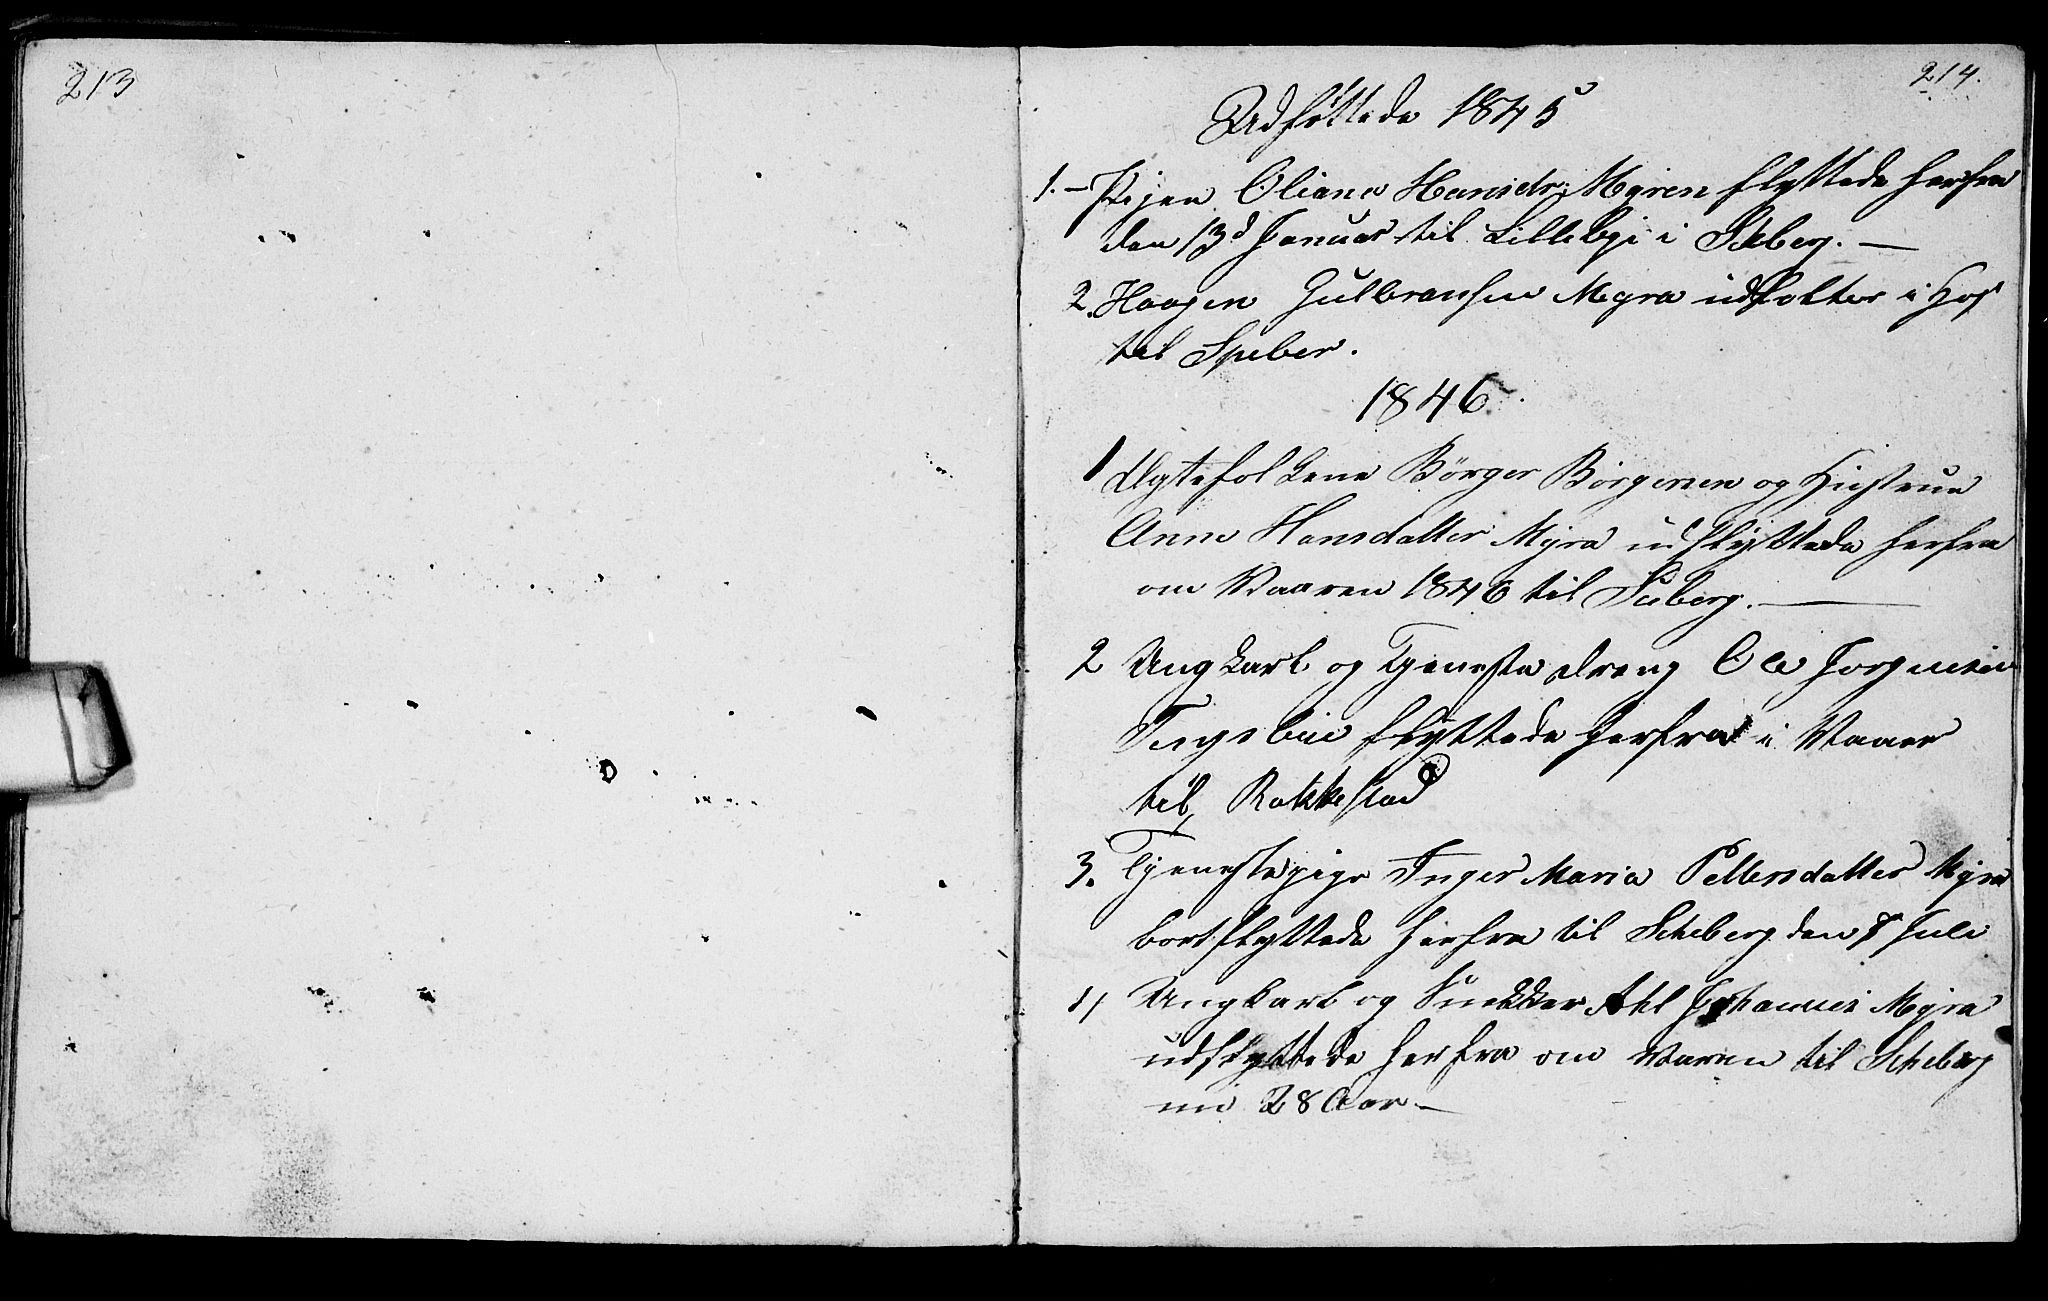 213
214.
Udfløttede 1845
1. - Pigen Oliana Hansdr. Myren flyttede herfra
den 13d Januar til Lillebye i Skeberg. -
2. Haagen Gulbransen Myra udflotter i Høst
til Skeber.
1846
1 Egtefolkene Børger Börgersen og Hustrue
Anne Hansdatter Myra udflyttede herfra
om Vaaren 1846 til Skiberg. -
2 Ungkarl og Tjeneste dreng Ole Jorgensen
Ingsbue flyttede herfra i Vaaer
til Rakkestad
3. Tjenestepige Inger Maria Pettersdatter Myra
bortflyttede herfra til Scheberg den 8 Juli
Ungkarl og Snekker Johannes Myra
udflyttede herfra om Varen til Scheberg
28 Aar -